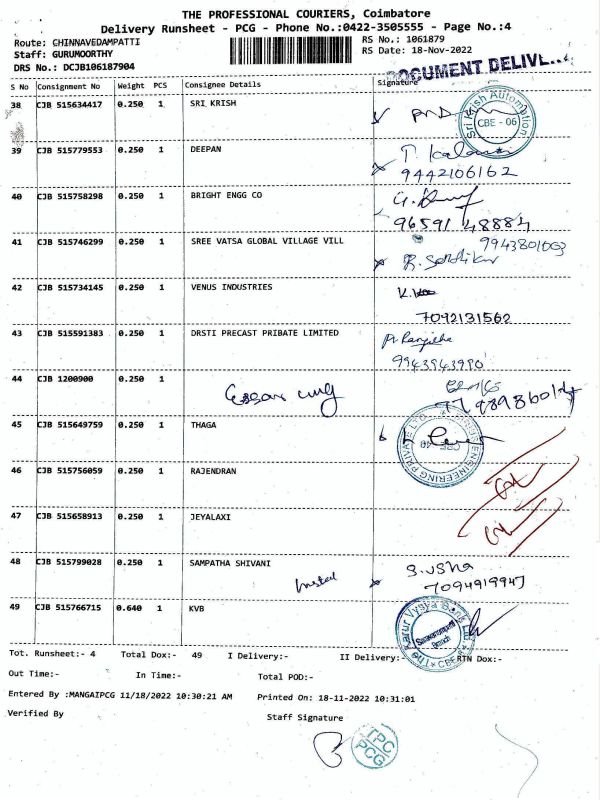 THE PROFESSIONAL COURIERS, Coimbatore
Delivery Runsheet - PCG - Phone No.:0422-3505555 - Page No.:4
Route: CHINNAVEDAMPATTI RS No.: 1061879
Staff: GURUMOORTHY RS Date: 18-Nov-2022
DRS No.: DCJB106187904
DOCUMENT DELIVE
S No Consignment No Weight PCS Consignee Details Signature
38 CJB 515634417 0.250 1 SRI KRISH
Sri Krish Automation CBE - 06
39 CJB 515779553 0.250 1 DEEPAN
9442106162
40 CJB 515758298 0.250 1 BRIGHT ENGG CO
96591 48884
41 CJB 515746299 0.250 1 SREE VATSA GLOBAL VILLAGE VILL
42 CJB 515734145 0.250 1 VENUS INDUSTRIES
7092131562
43 CJB 515591383 0.250 1 DRSTI PRECAST PRIBATE LIMITED
9943943990
44 CJB 1200900 0.250 1
45 CJB 515649759 0.250 1 THAGA
ENGINEERING PRIVATE LTD
46 CJB 515756059 0.250 1 RAJENDRAN
47 CJB 515658913 0.250 1 JEYALAXI
48 CJB 515799028 0.250 1 SAMPATHA SHIVANI
S. USha
7094919947
49 CJB 515766715 0.640 1 KVB
The Karur Vysya Bank Ltd. Saravanampatti Branch CBE
Tot. Runsheet:- 4 Total Dox:- 49 I Delivery:- II Delivery:- RTN Dox:-
Out Time:- In Time:- Total POD:-
Entered By :MANGAIPCG 11/18/2022 10:30:21 AM Printed On: 18-11-2022 10:31:01
Verified By Staff Signature
TPC
PCG